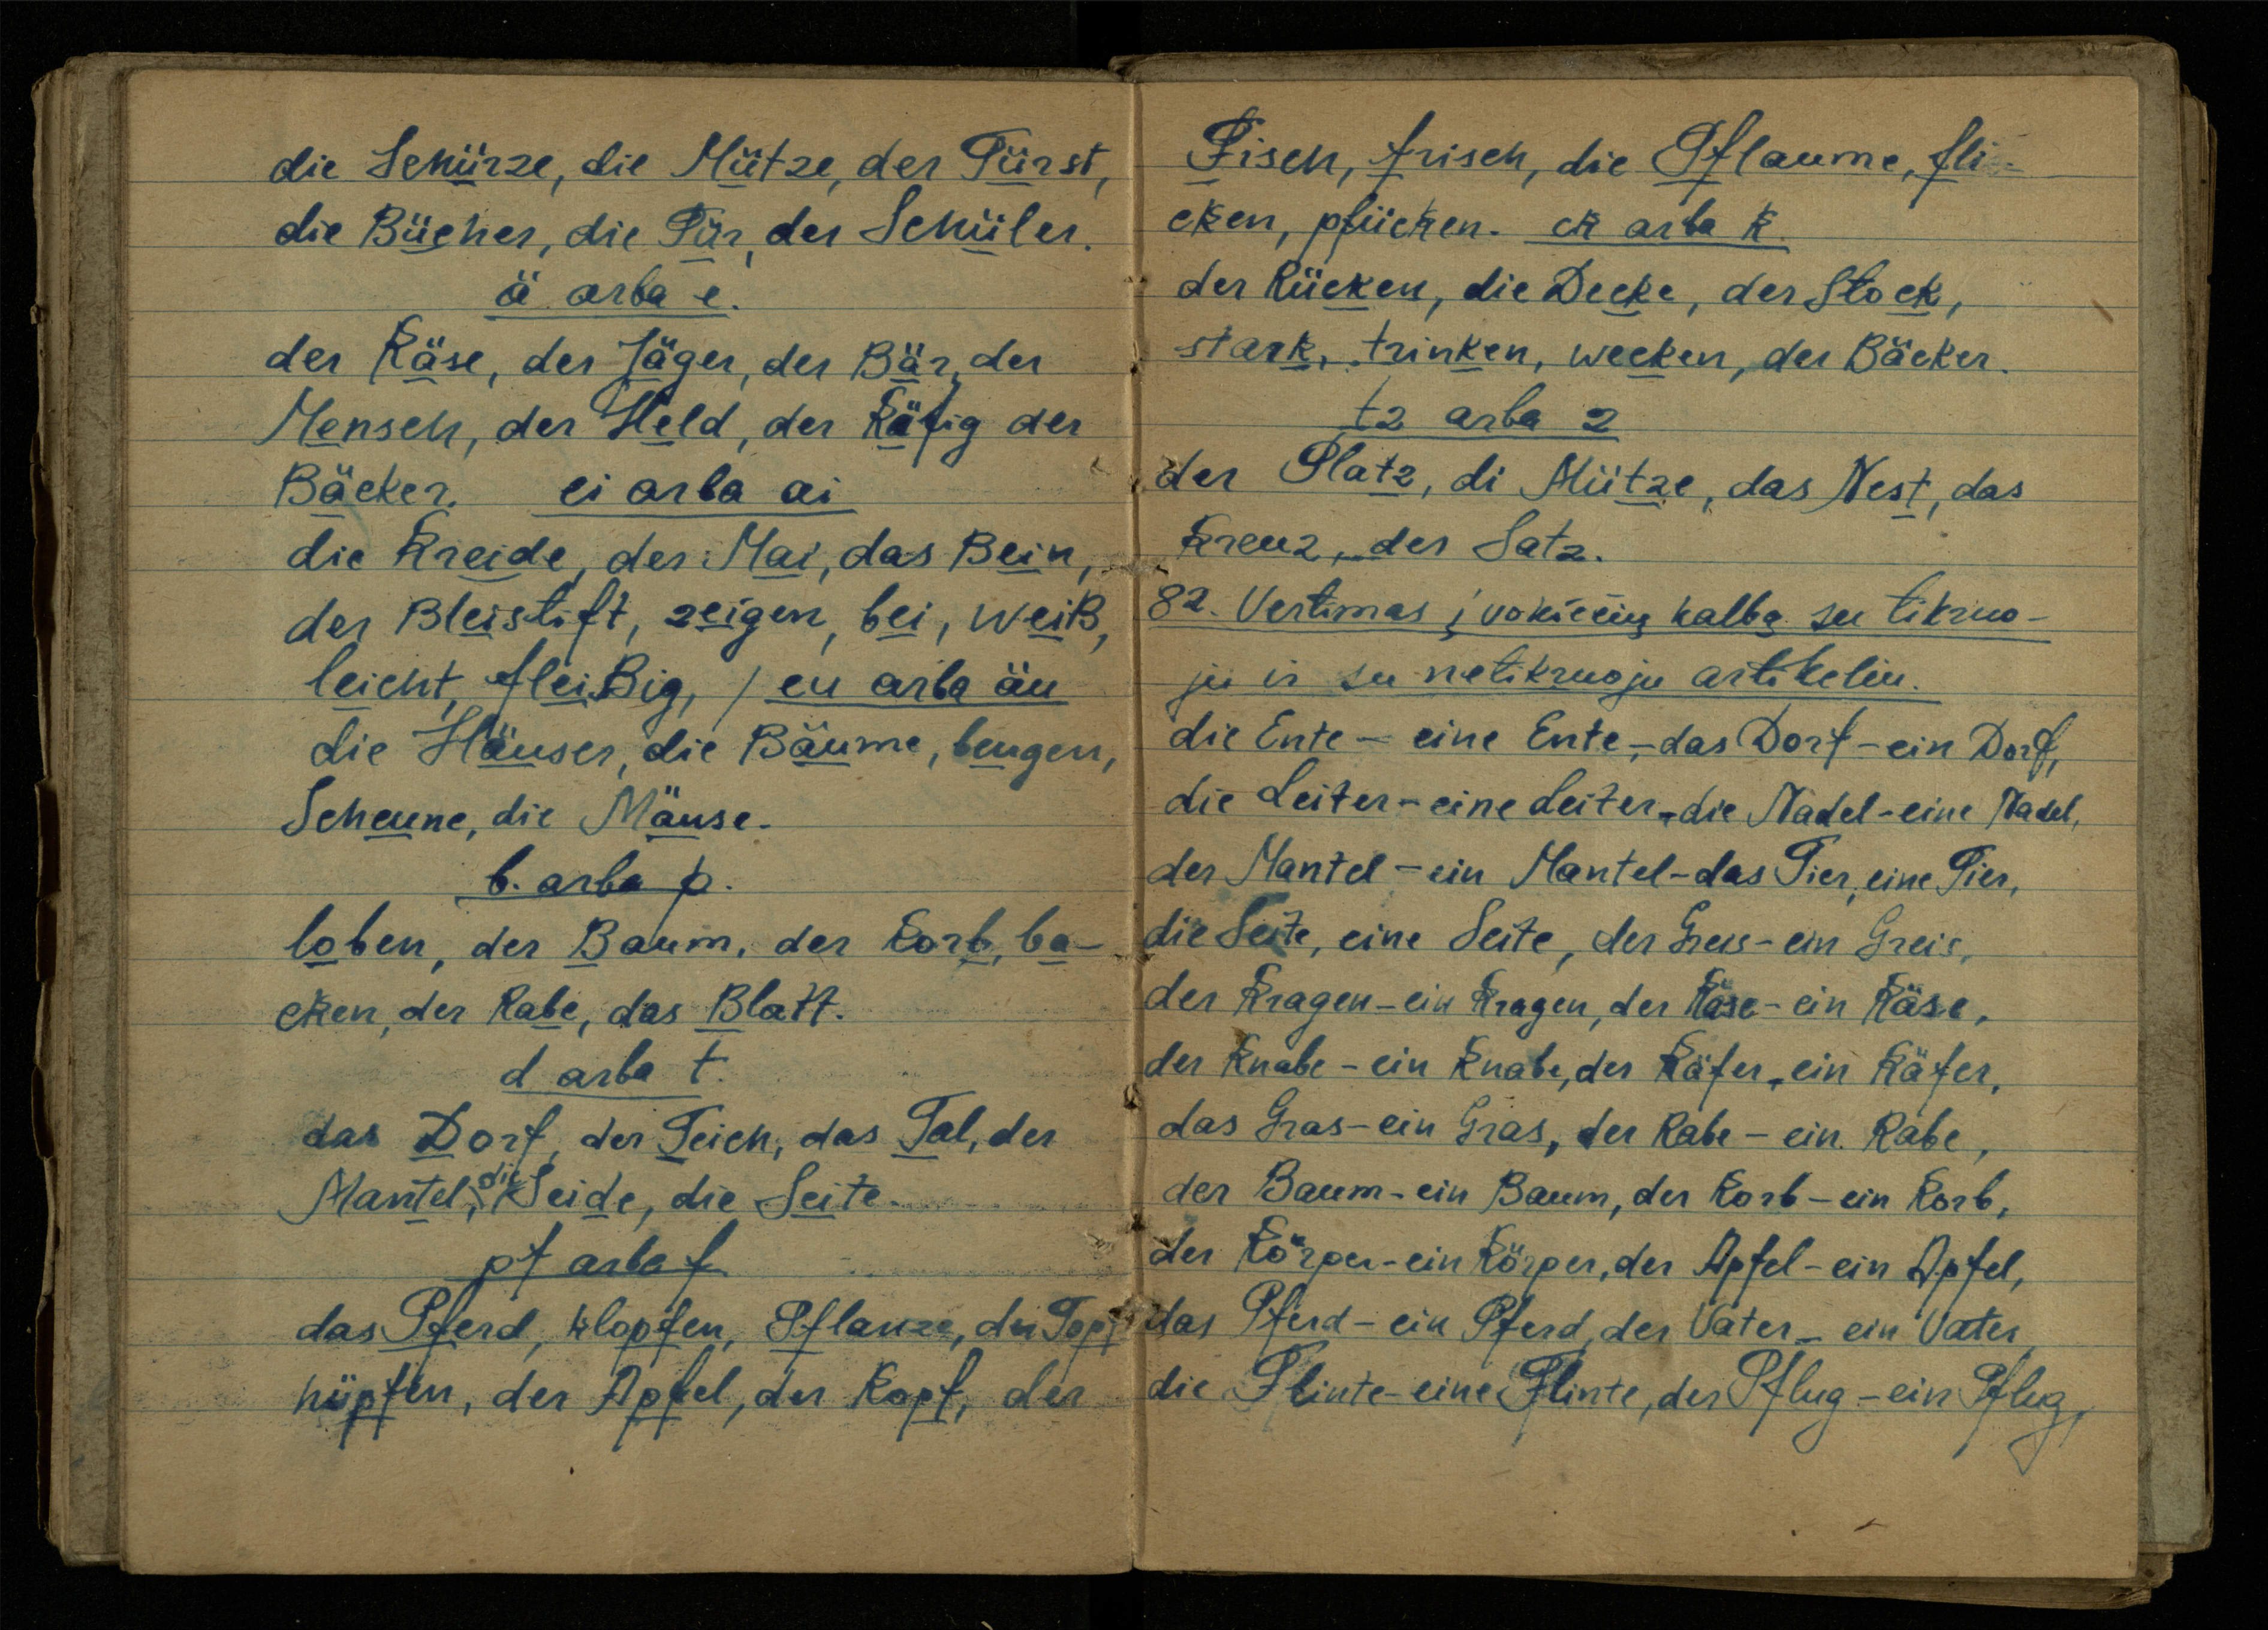 die Schürze, die Mütze, der Fürst,
die Bücher, die Tür, der Schüler.
ä arba e.
der Käse, der Jäger, der Bär, der
Mensch, der Held, der Käfig der
Bäcker. ei arba ai
die Kreide, der Mai, das Bein,
der Bleistift, zeigen, bei, weiß,
leicht, fleißig, / eu arba äu
die Häuser, die Bäume, beugen,
Scheune, die Mäuse.
b. arba p.
loben, der Baum, der Korb, ba-
cken, der Rabe, das Blatt.
d arba t.
das Dorf, der Teich, das Tal, der
Mantel, die Seide, die Seite.
pf arba f
das Pferd, klopfen, Pflanze, der Topf
hüpfen, der Apfel, der Kopf, der
Fisch, frisch, die Pflaume, fli-
cken, pflücken. ck arba k.
der Rücken, die Decke, der Stock,
stark, trinken, wecken, der Bäcker.
tz arba z
der Platz, di Mütze, das Nest, das
Kreuz, der Satz.
82. Vertimas į vokiečių kalbą su tikruo-
ju ir su netikruoju artikeliu.
die Ente – eine Ente, – das Dorf – ein Dorf,
die Leiter – eine Leiter – die Nadel – eine Nadel,
der Mantel – ein Mantel – das Tier, eine Tier,
die Seite, eine Seite, der Greis – ein Greis,
der Kragen – ein Kragen, der Käse – ein Käse,
der Knabe – ein Knabe, der Käfer – ein Käfer,
das Gras – ein Gras, der Rabe – ein Rabe,
der Baum – ein Baum, der Korb – ein Korb,
der Körper – ein Körper, der Apfel – ein Apfel,
das Pferd – ein Pferd, der Vater – ein Vater
die Flinte – eine Flinte, der Pflug – ein Pflug,